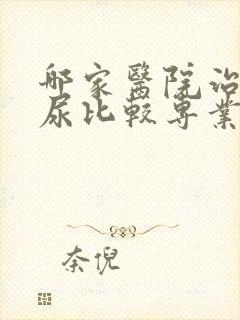 哪家醫院治
尿比較專業
奈倪